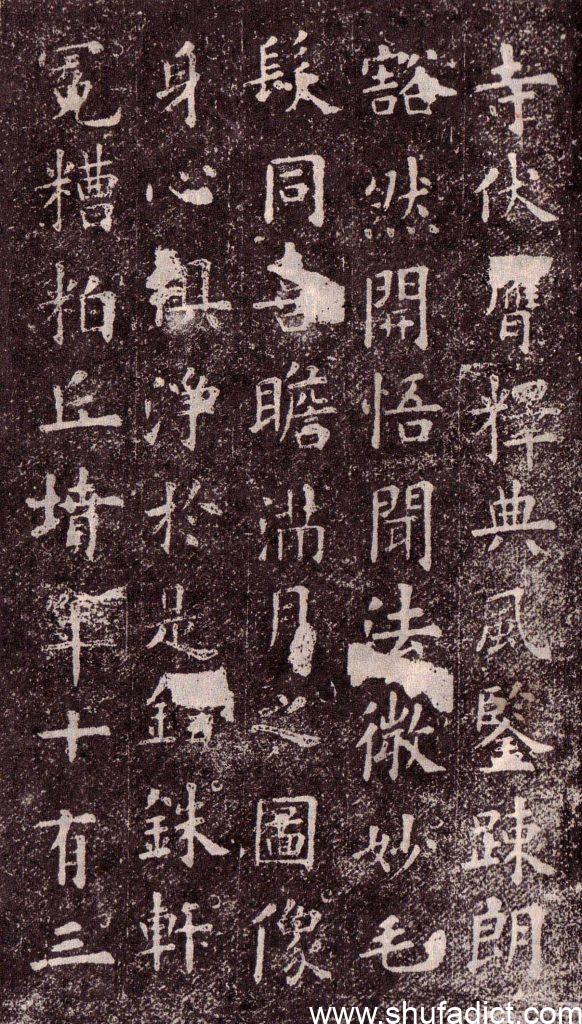 寺伏膺釋典風鑒踈朗
豁然開悟聞法微妙毛
髮同喜瞻滿月之圖像
身心俱淨於是錙銖軒
冕糟粕丘墳年十有三
www.shufadict.com